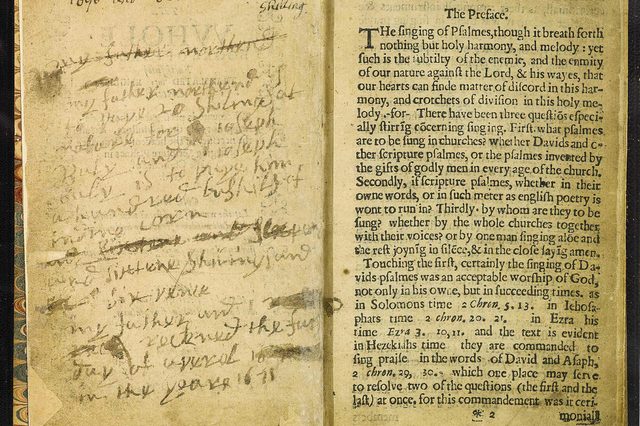 Shilling
my father northend
my father northend is
to have 20 Shilings at
before for Joseph
and Joseph
is to give him
a hundred bushils of
corn
and
and sixtene Shilings and
six pence
my father and I
reckned the
day of
in the yeare 16
The Preface.
THe singing of Psalmes, though it breath forth
nothing but holy harmony, and melody: yet
such is the subtilty of the enemie, and the enmity
of our nature against the Lord, & his wayes, that
our hearts can finde matter of discord in this har-
mony, and crotchets of division in this holy me-
lody.-for- There have been three questiõs especi-
ally stirrĩg cõcerning singing. First. what psalmes
are to be sung in churches? whether Davids and o-
ther scripture psalmes, or the psalmes invented by
the gifts of godly men in every age of the church.
Secondly, if scripture psalmes, whether in their
owne words, or in such meter as english poetry is
wont to run in? Thirdly. by whom are they to be
sung? whether by the whole churches together
with their voices? or by one man singing alõe and
the rest joynĩg in silẽce, & in the close sayĩg amen.
Touching the first, certainly the singing of Da-
vids psalmes was an acceptable worship of God,
not only in his owne, but in succeeding times. as
in Solomons time 2 Chron. 5. 13. in Iehosa-
phats time 2 chron. 20. 21. in Ezra his
time Ezra 3. 10, 11. and the text is evident
in Hezekiahs time they are commanded to
sing praise in the words of David and Asaph,
2 chron. 29, 30. which one place may serve
to resolve two of the questions (the first and the
last) at once. for this commandement was it ceri-
* 2
moniall